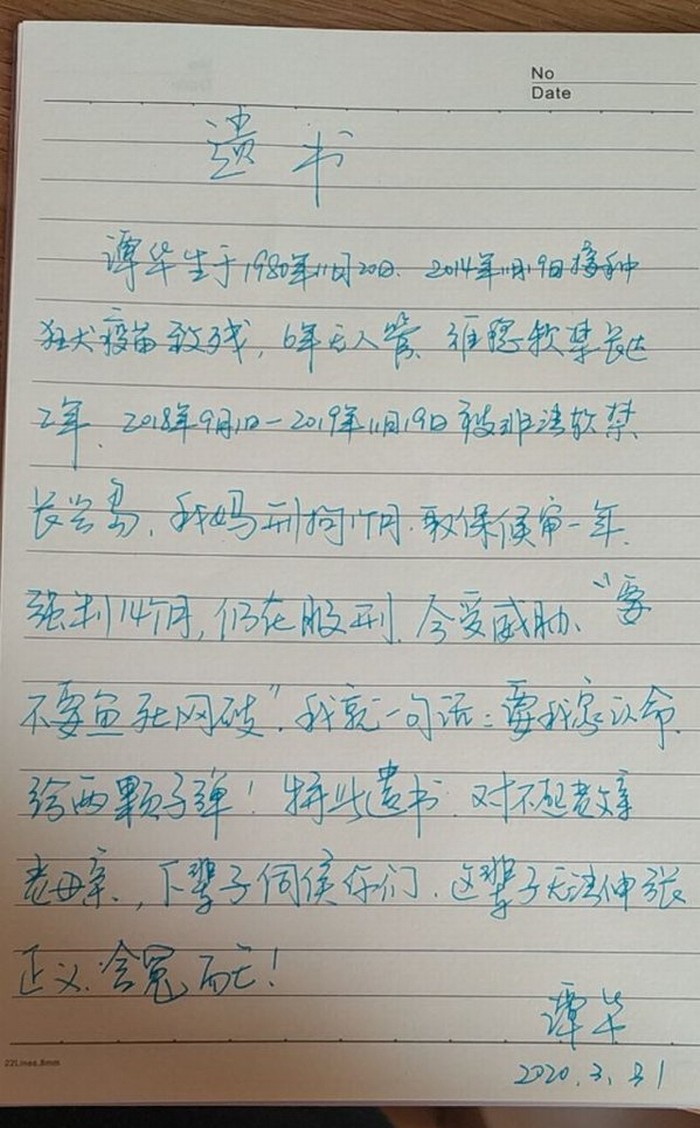 No
Date
遗书
谭华生于1980年11月20日.2014年11月19日接种
狂犬疫苗致残,6年无人管、维稳软禁长达
2年、2018年9月1日-2019年11月19日被非法软禁
长兴岛,我妈刑拘1个月.取保候审一年.
强判14个月,仍在服刑.今受威胁、“要
不要鱼死网破”.我就一句话:要我家认命.
给两颗子弹!特此遗书.对不起老父亲
老母亲.,下辈子伺侯你们.这辈子无法伸张
正义.含冤而亡!
谭华
2020.3.31
22Lines.8mm